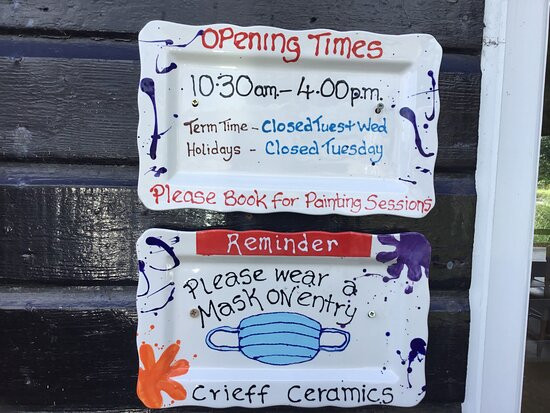 Opening Times
10:30am - 4.00p.m.
Term Time - Closed Tues + Wed
Holidays - Closed Tuesday
Please Book for Painting Sessions
Reminder
Please wear a
Mask on entry
Crieff Ceramics